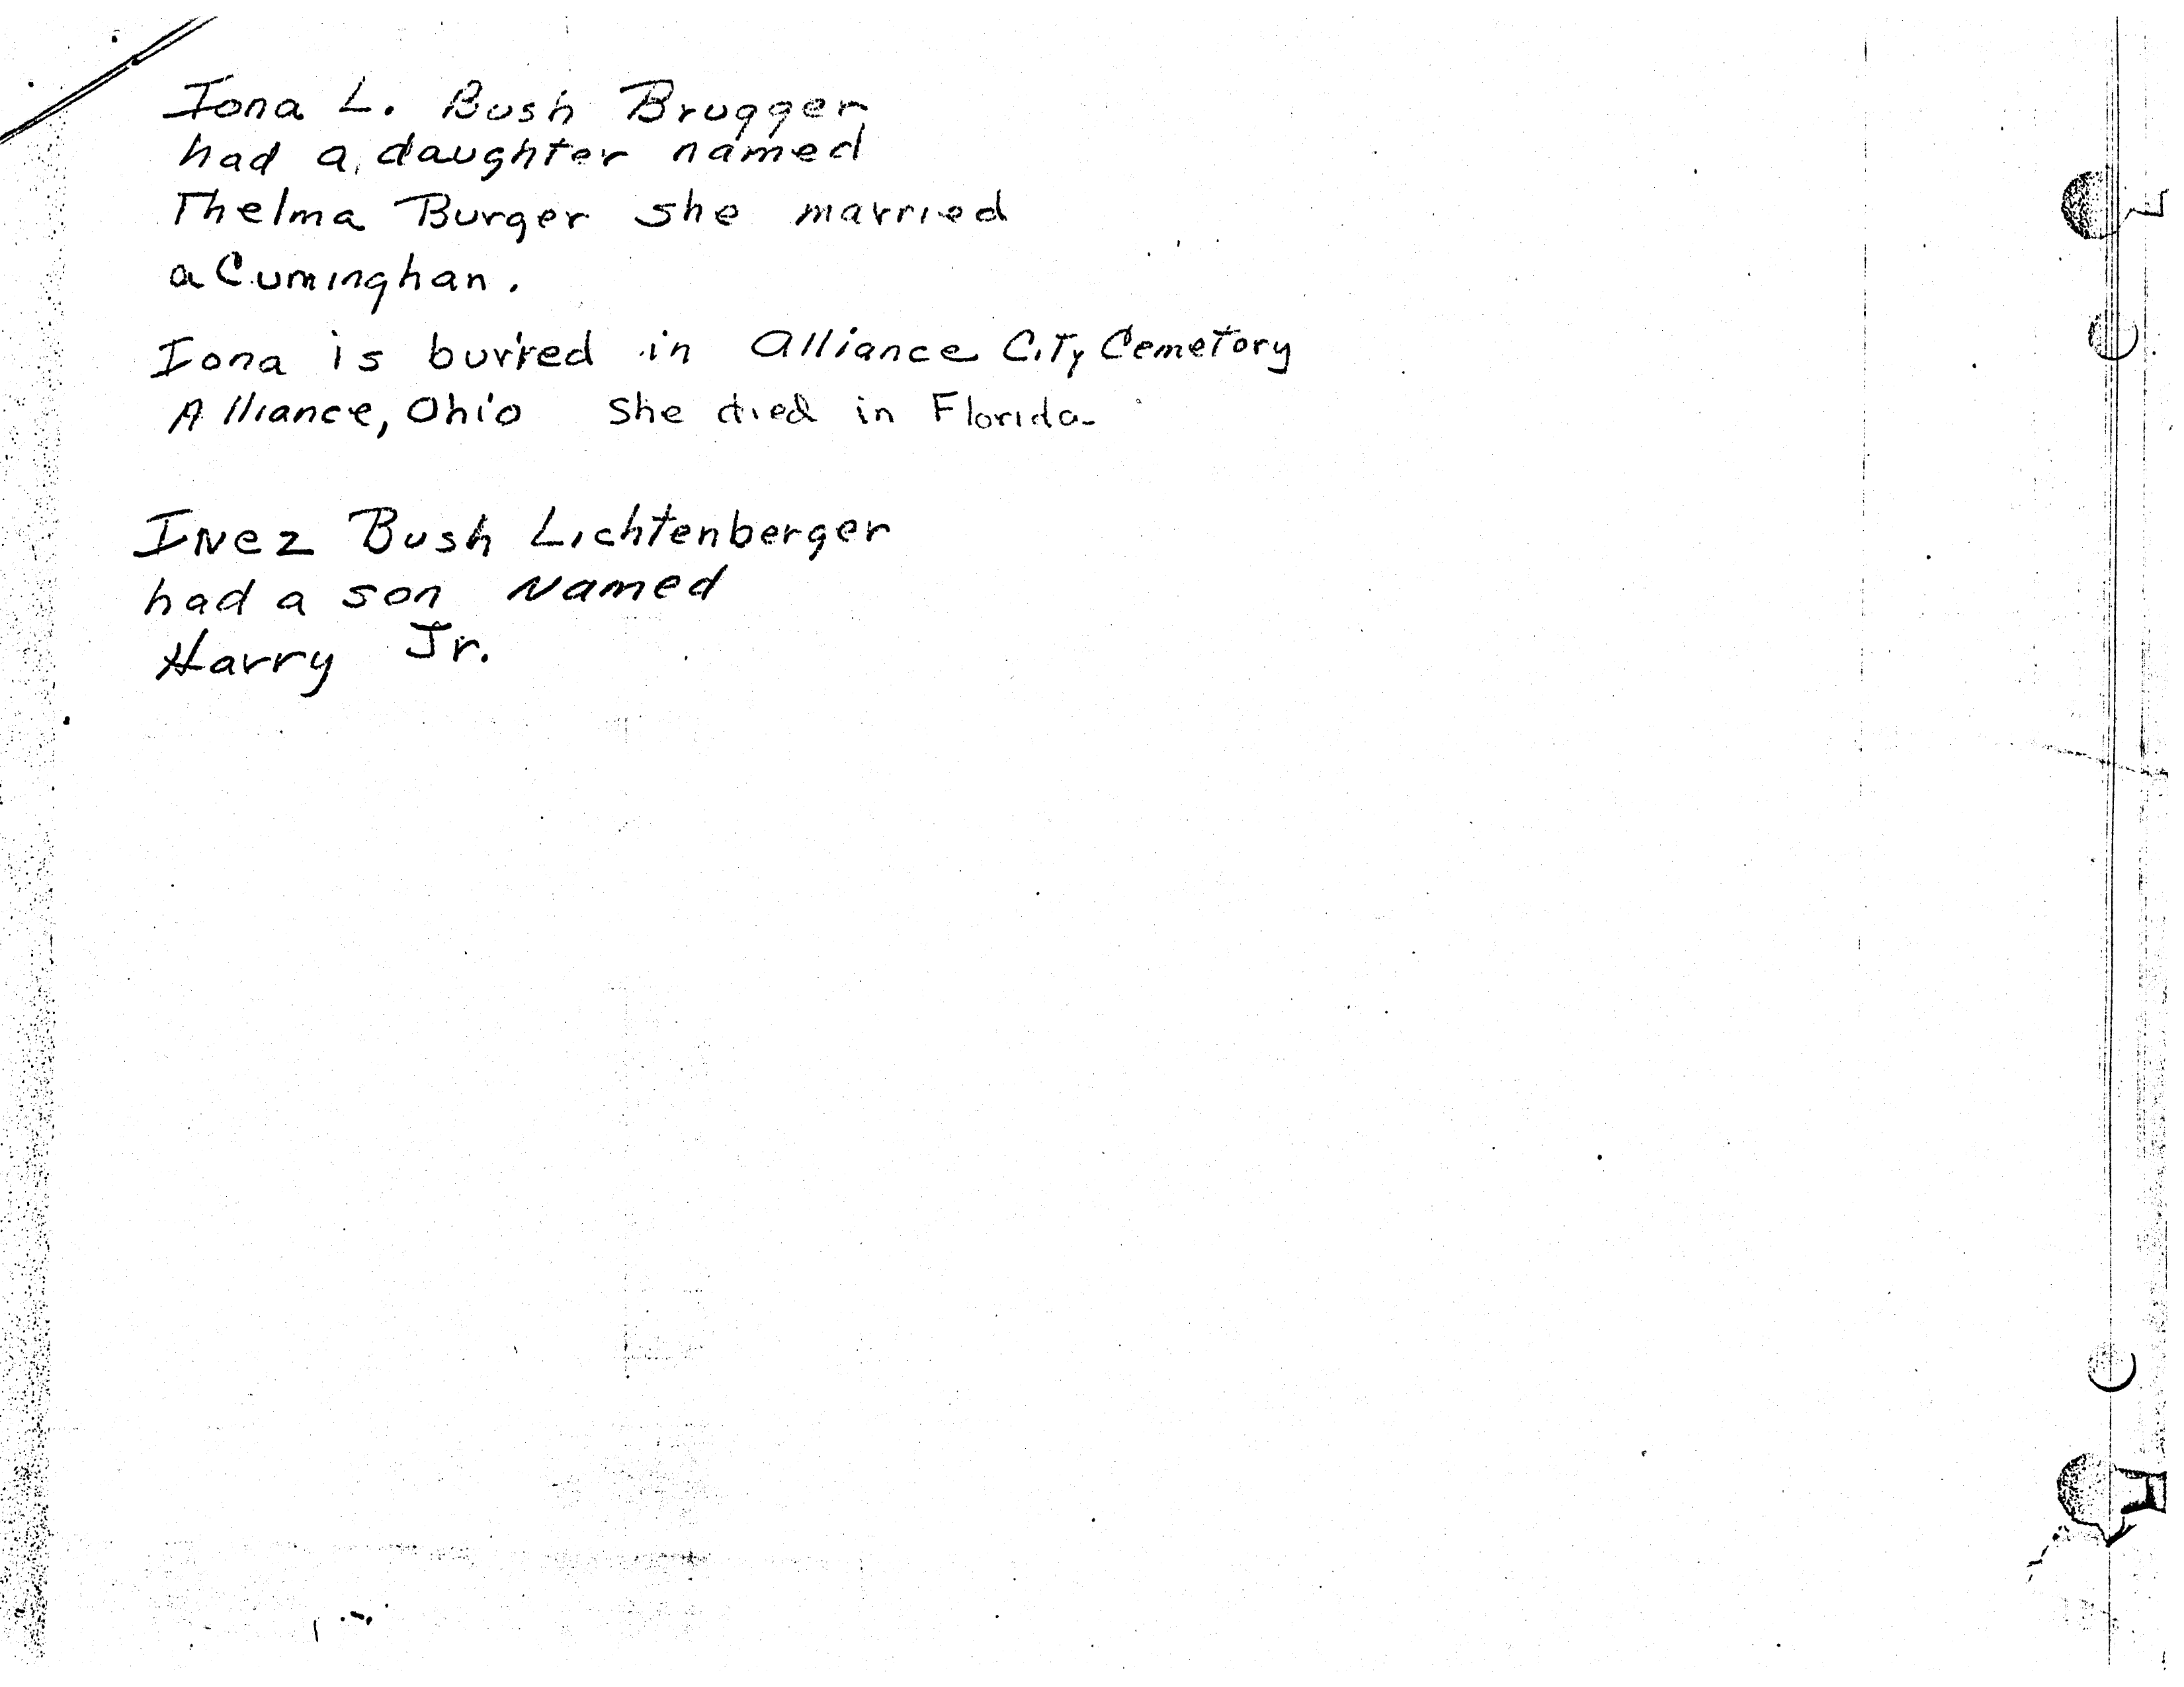 Iona L. Bush Brugger
had a daughter named
Thelma Burger she married
a Cuminghan.
Iona is burred in Alliance City Cemetory
Alliance, Ohio She died in Florida
Inez Bush Lichtenberger
had a son Named
Harry Jr.